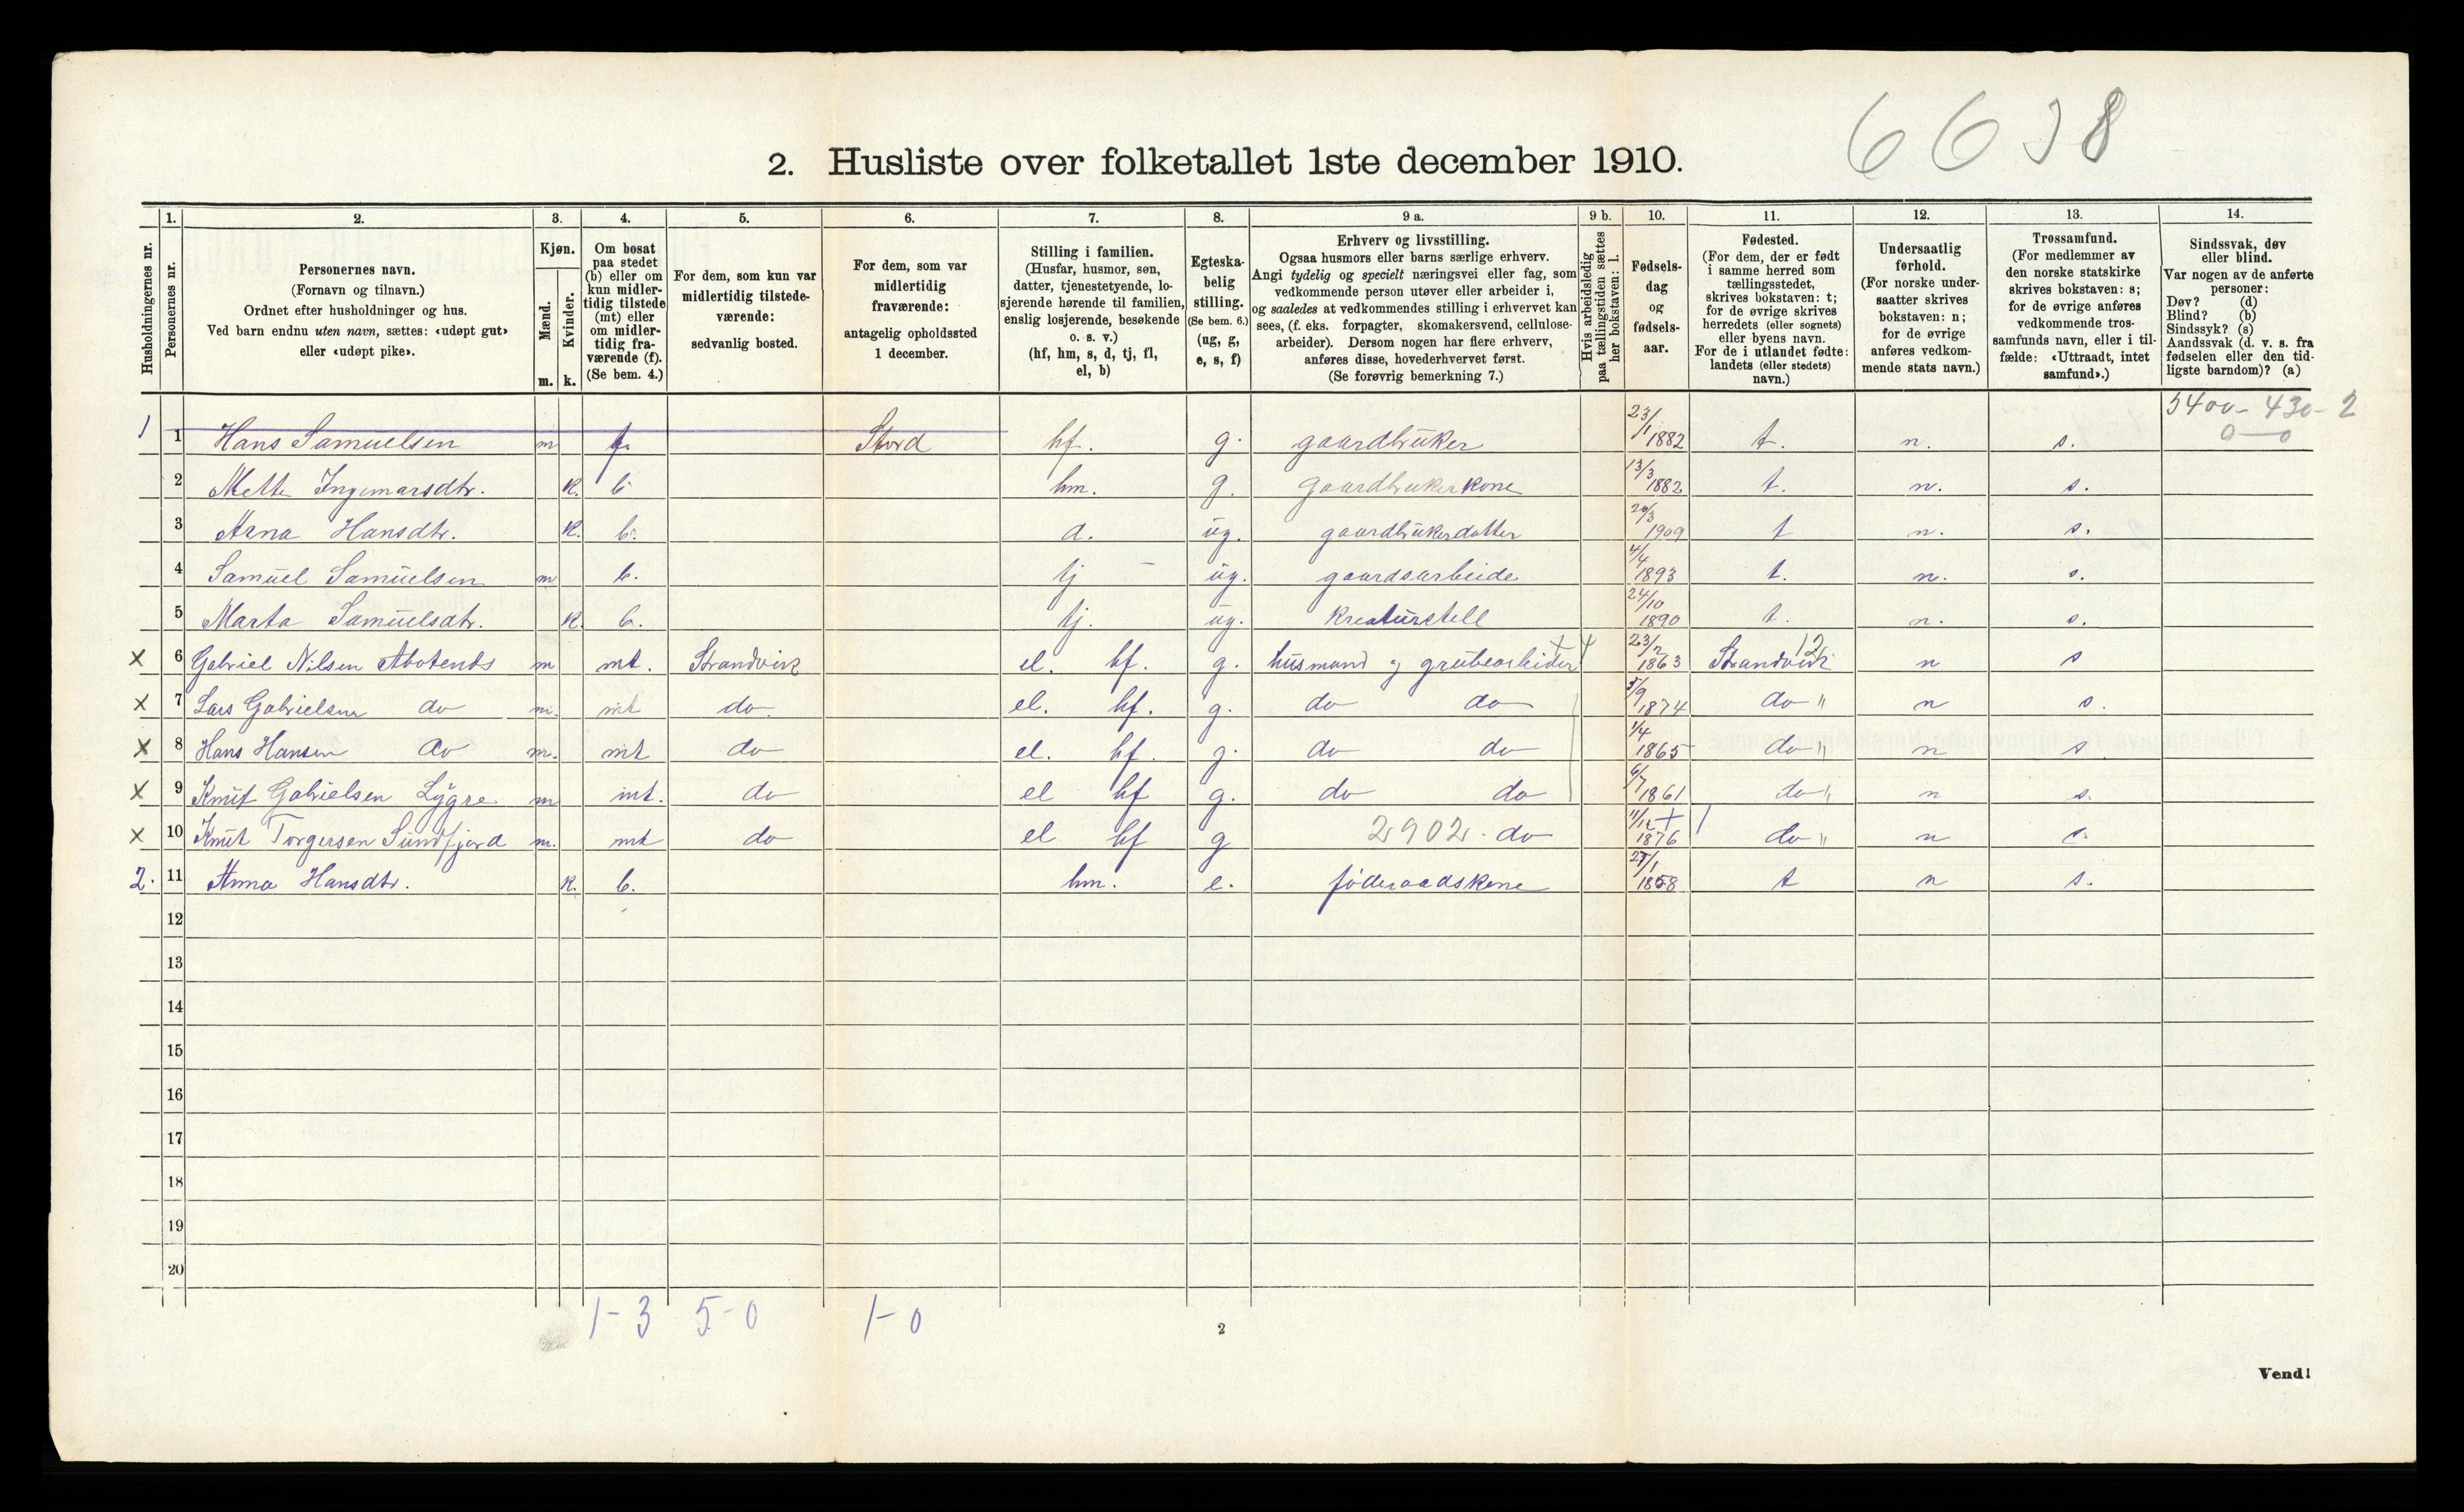 6638
2. Husliste over folketallet 1ste december 1910.
Husholdningernes nr.
1. Personernes nr.
2. Personernes navn. (Fornavn og tilnavn.) Ordnet efter husholdninger og hus. Ved barn endnu uten navn, sættes: «udøpt gut» eller «udøpt pike».
3. Kjøn. Mænd. m. Kvinder. k.
4. Om bosat paa stedet (b) eller om kun midlertidig tilstede (mt) eller om midlertidig fraværende (f). (Se bem. 4.)
5. For dem, som kun var midlertidig tilstedeværende: sedvanlig bosted.
6. For dem, som var midlertidig fraværende: antagelig opholdssted 1 december.
7. Stilling i familien. (Husfar, husmor, søn, datter, tjenestetyende, losjerende hørende til familien, enslig losjerende, besøkende o. s. v.) (hf, hm, s, d, tj, fl, el, b)
8. Egteskabelig stilling. (Se bem. 6.) (ug, g, e, s, f)
9 a. Erhverv og livsstilling. Ogsaa husmors eller barns særlige erhverv. Angi tydelig og specielt næringsvei eller fag, som vedkommende person utøver eller arbeider i, og saaledes at vedkommendes stilling i erhvervet kan sees, (f. eks. forpagter, skomakersvend, cellulosearbeider). Dersom nogen har flere erhverv, anføres disse, hovederhvervet først. (Se forøvrig bemerkning 7.)
9 b. Hvis arbeidsledig paa tællingstiden sættes her bokstaven: l.
10. Fødselsdag og fødselsaar.
11. Fødested. (For dem, der er født i samme herred som tællingsstedet, skrives bokstaven: t; for de øvrige skrives herredets (eller sognets) eller byens navn. For de i utlandet fødte: landets (eller stedets) navn.)
12. Undersaatlig forhold. (For norske undersaatter skrives bokstaven: n; for de øvrige anføres vedkommende stats navn.)
13. Trossamfund. (For medlemmer av den norske statskirke skrives bokstaven: s; for de øvrige anføres vedkommende trossamfunds navn, eller i tilfælde: «Uttraadt, intet samfund».)
14. Sindssvak, døv eller blind. Var nogen av de anførte personer: Døv? (d) Blind? (b) Sindssyk? (s) Aandssvak (d. v. s. fra fødselen eller den tidligste barndom)? (a)
5400-430-2
0—0
1 1 Hans Samuelsen m f. Stord hf. g. gaardbruker 23/1 1882 t. n. s.
2 Mette Ingemarsdtr. k. b hm. g. gaardbrukerkone 13/3 1882 t. n. s.
3 Anna Hansdtr. k. b. d. ug. gaardbrukerdatter 20/3 1909 t n. s.
4 Samuel Samuelsen m b. tj ug. gaardsarbeide 4/4 1893 t. n. s.
5 Marta Samuelsdtr. k. b. tj. ug. kreaturstell 24/10 1890 t. n. s.
x 6 Gabriel Nilsen m mt. Strandvik el. hf. g. husmand og grubearbeider 23/2 1863 Strandvik 12 n s
x 7 Lars Gabrielsen do m. mt do el. hf. g. do do 5/9 1874 do " n s.
x 8 Hans Hansen do m. mt do el. hf. g. do do 1/4 1865 do " n s
x 9 Knut Gabrielsen Lygre m mt. do el hf g. do do 6/7 1861 do " n s.
x 10 Knut Torgersen Sundfjord m. mt do el hf g 2902 do 11/12 1876 do " n s
2. 11 Anna Hansdtr. k. b. hm. e. föderaadskone 27/1 1858 t n s.
12
13
14
15
16
17
18
19
20
1-3 5-0 1-0
2
Vend!